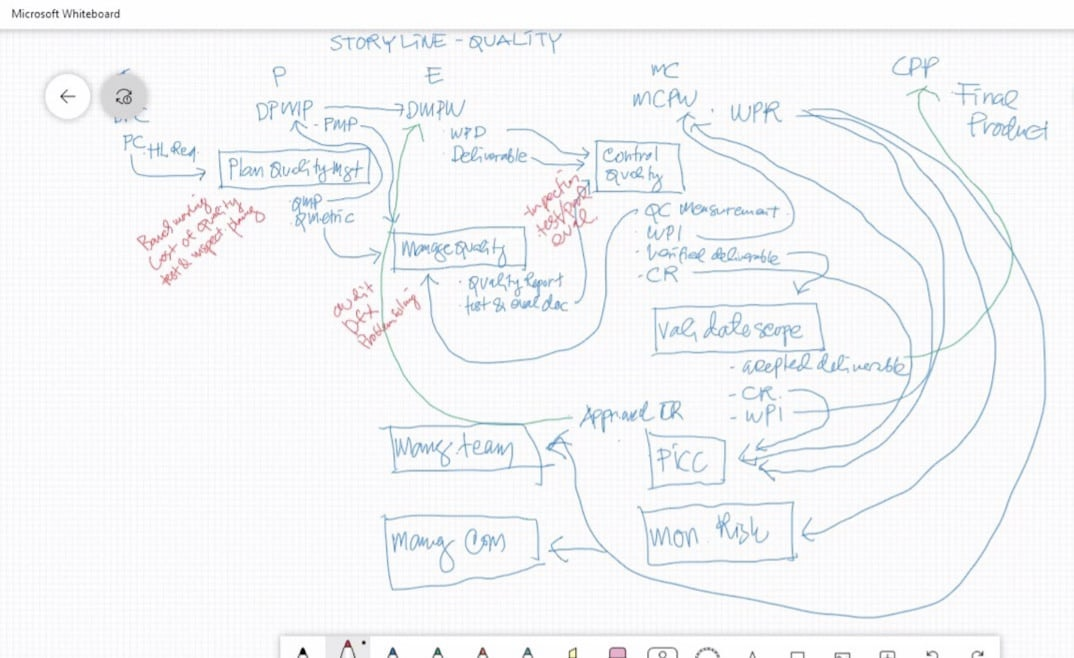 Microsoft Whiteboard
STORYLINE - QUALITY
P
E
MC
CPP
DPMP
DMPW
MCPW
WPR
Final
Product
PMP
PC
HL Req.
Plan Quality Mgt
WPD
Deliverable
Control
Quality
QMP
Qmetric
Cost of quality
test & inspect. planing
Inspection
eval
Mange Quality
Quality Report
test & eval doc
audit
DFX
Problem solving
QC Measurement
WPI
Verified deliverable
CR
Validate scope
- acepted deliverable
- CR
- WPI
Mang. team
PICC
Mang Com
mon. Risk